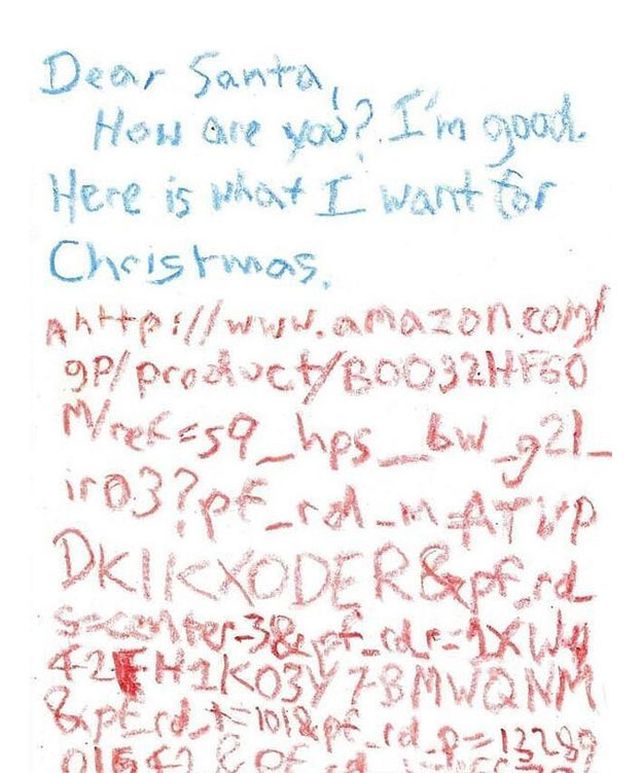 Dear Santa,
How are you? I'm good.
Here is what I want for
Christmas.
http://www.amazon.com/
gp/product/B0032HF60
M/ref=s9_hps_bw_g21_
ir03?pf_rd_m=ATVP
DKIKX0DER&pf_rd_
s=center-3&pf_rd_r=1XW4
42FH1K03Y78MWQNM
&pf_rd_t=101&pf_rd_p=13289